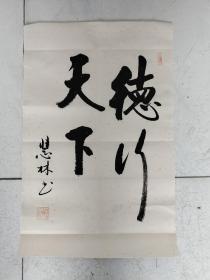 德行
天下
慧林书